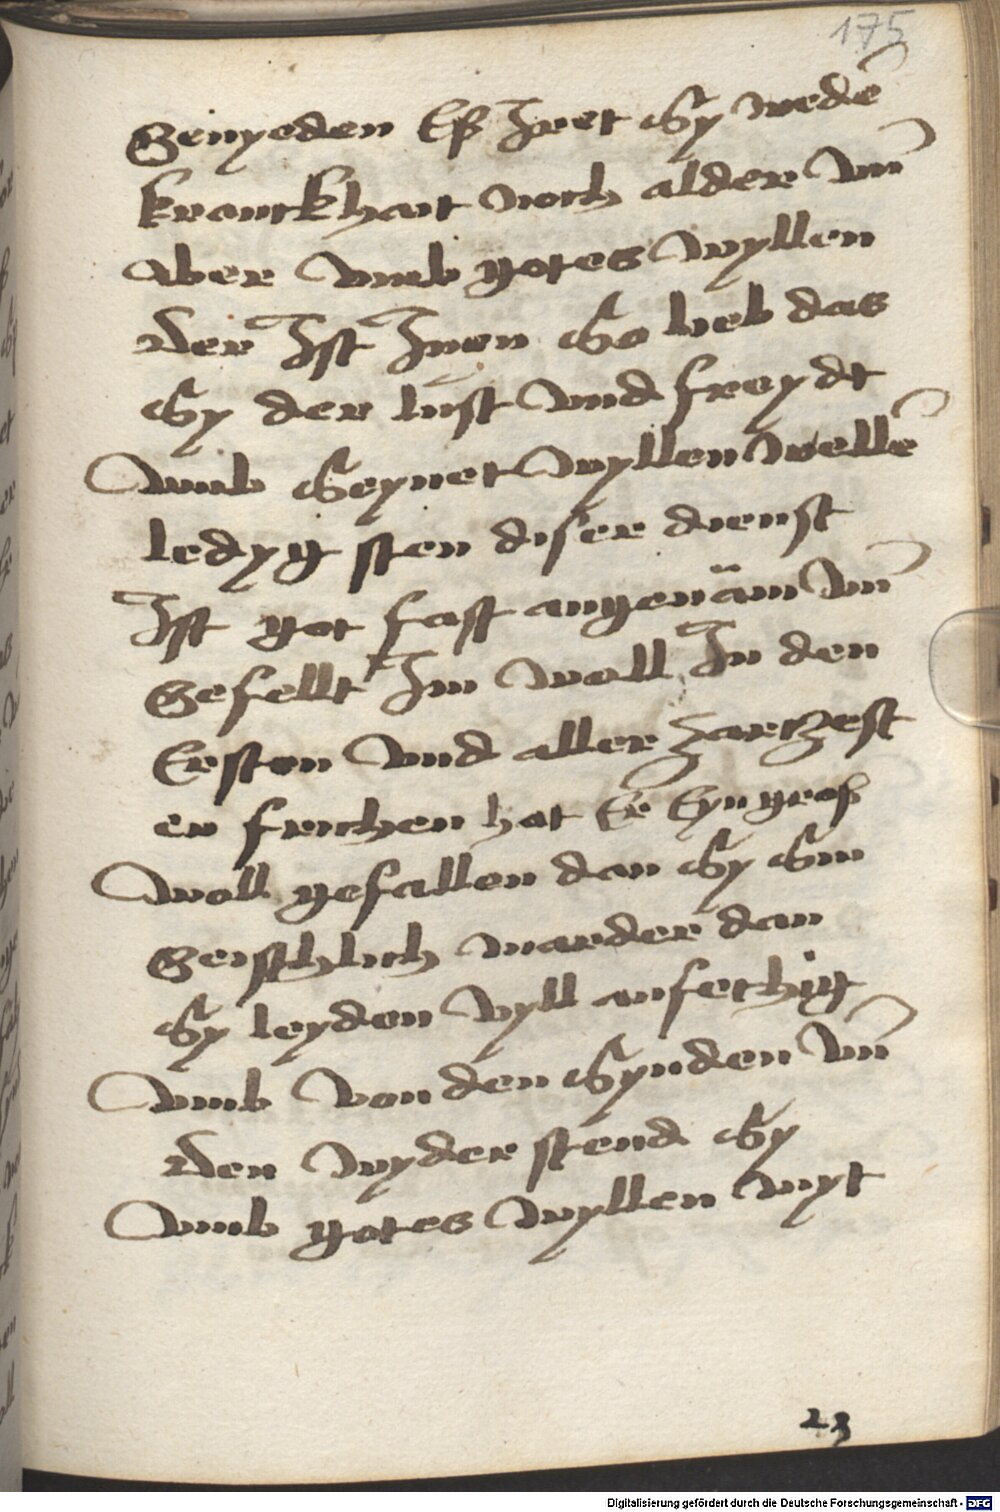 175
Genyeden Eß Jret Sy wedē
kranckhait noch alder vnn̄
aber vmb gotes wyllen
Der Ist Inen So lieb das
Sy der lust vnd freydt
vmb Seynet wyllen wellē
ledyg sten diser dienst
Ist got fast angenäm vnn̄
Gefellt Im woll In den
Ersten vnd aller zartzest
en frichen hat Er Eyn groß
woll gefallen dan Sy Sin
Geistlich marder dan
Sy leyden vyll anfechtig
vmb von den Synden vnn̄
Den wyder stend Sy
vmb gotes wyllen nyt
23
Digitalisierung gefördert durch die Deutsche Forschungsgemeinschaft - DFG